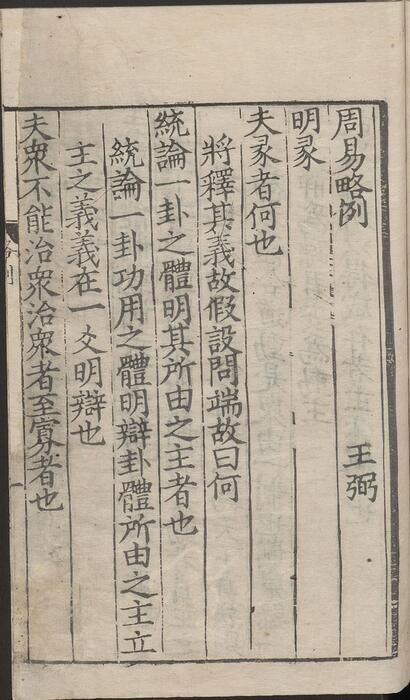 周易略例
王弼
明彖
夫彖者何也
將釋其義故假設問端故曰何
統論一卦之體明其所由之主者也
統論一卦功用之體明辯卦體所由之主立
主之義義在一爻明辯也
夫衆不能治衆治衆者至寡者也